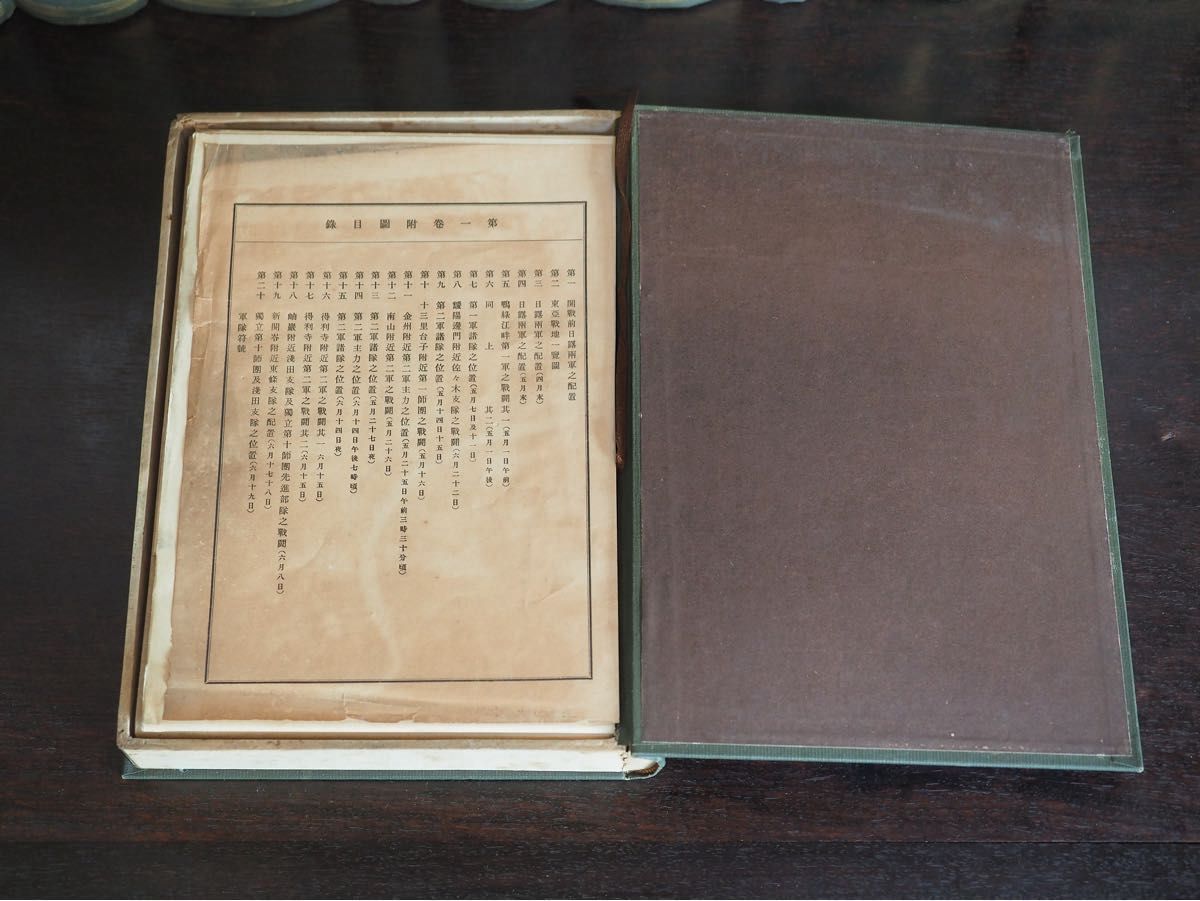 第一卷附圖目錄
第一 開戰前日露兩軍之配置
第二 東亞戰地一覽圖
第三 日露兩軍之配置(四月末)
第四 日露兩軍之配置(五月末)
第五 鴨綠江畔第一軍之戰鬪其一(五月一日午前)
第六 同上 其二(五月一日午後)
第七 第一軍諸隊之位置(五月七日及十一日)
第八 靉陽邊門附近佐々木支隊之戰鬪(六月二十二日)
第九 第二軍諸隊之位置(五月十四日十五日)
第十 十三里台子附近第一師團之戰鬪(五月十六日)
第十一 金州附近第二軍主力之位置(五月二十五日午前三時三十分頃)
第十二 南山附近第二軍之戰鬪(五月二十六日)
第十三 第二軍諸隊之位置(五月二十七日夜)
第十四 第二軍主力之位置(六月十四日午後七時頃)
第十五 第二軍諸隊之位置(六月十四日夜)
第十六 得利寺附近第二軍之戰鬪其一(六月十五日)
第十七 得利寺附近第二軍之戰鬪其二(六月十五日)
第十八 岫巖附近淺田支隊及獨立第十師團先進部隊之戰鬪(六月八日)
第十九 新開嶺附近東條支隊之配置(六月十七十八日)
第二十 獨立第十師團及淺田支隊之位置(六月十九日)
軍隊符號